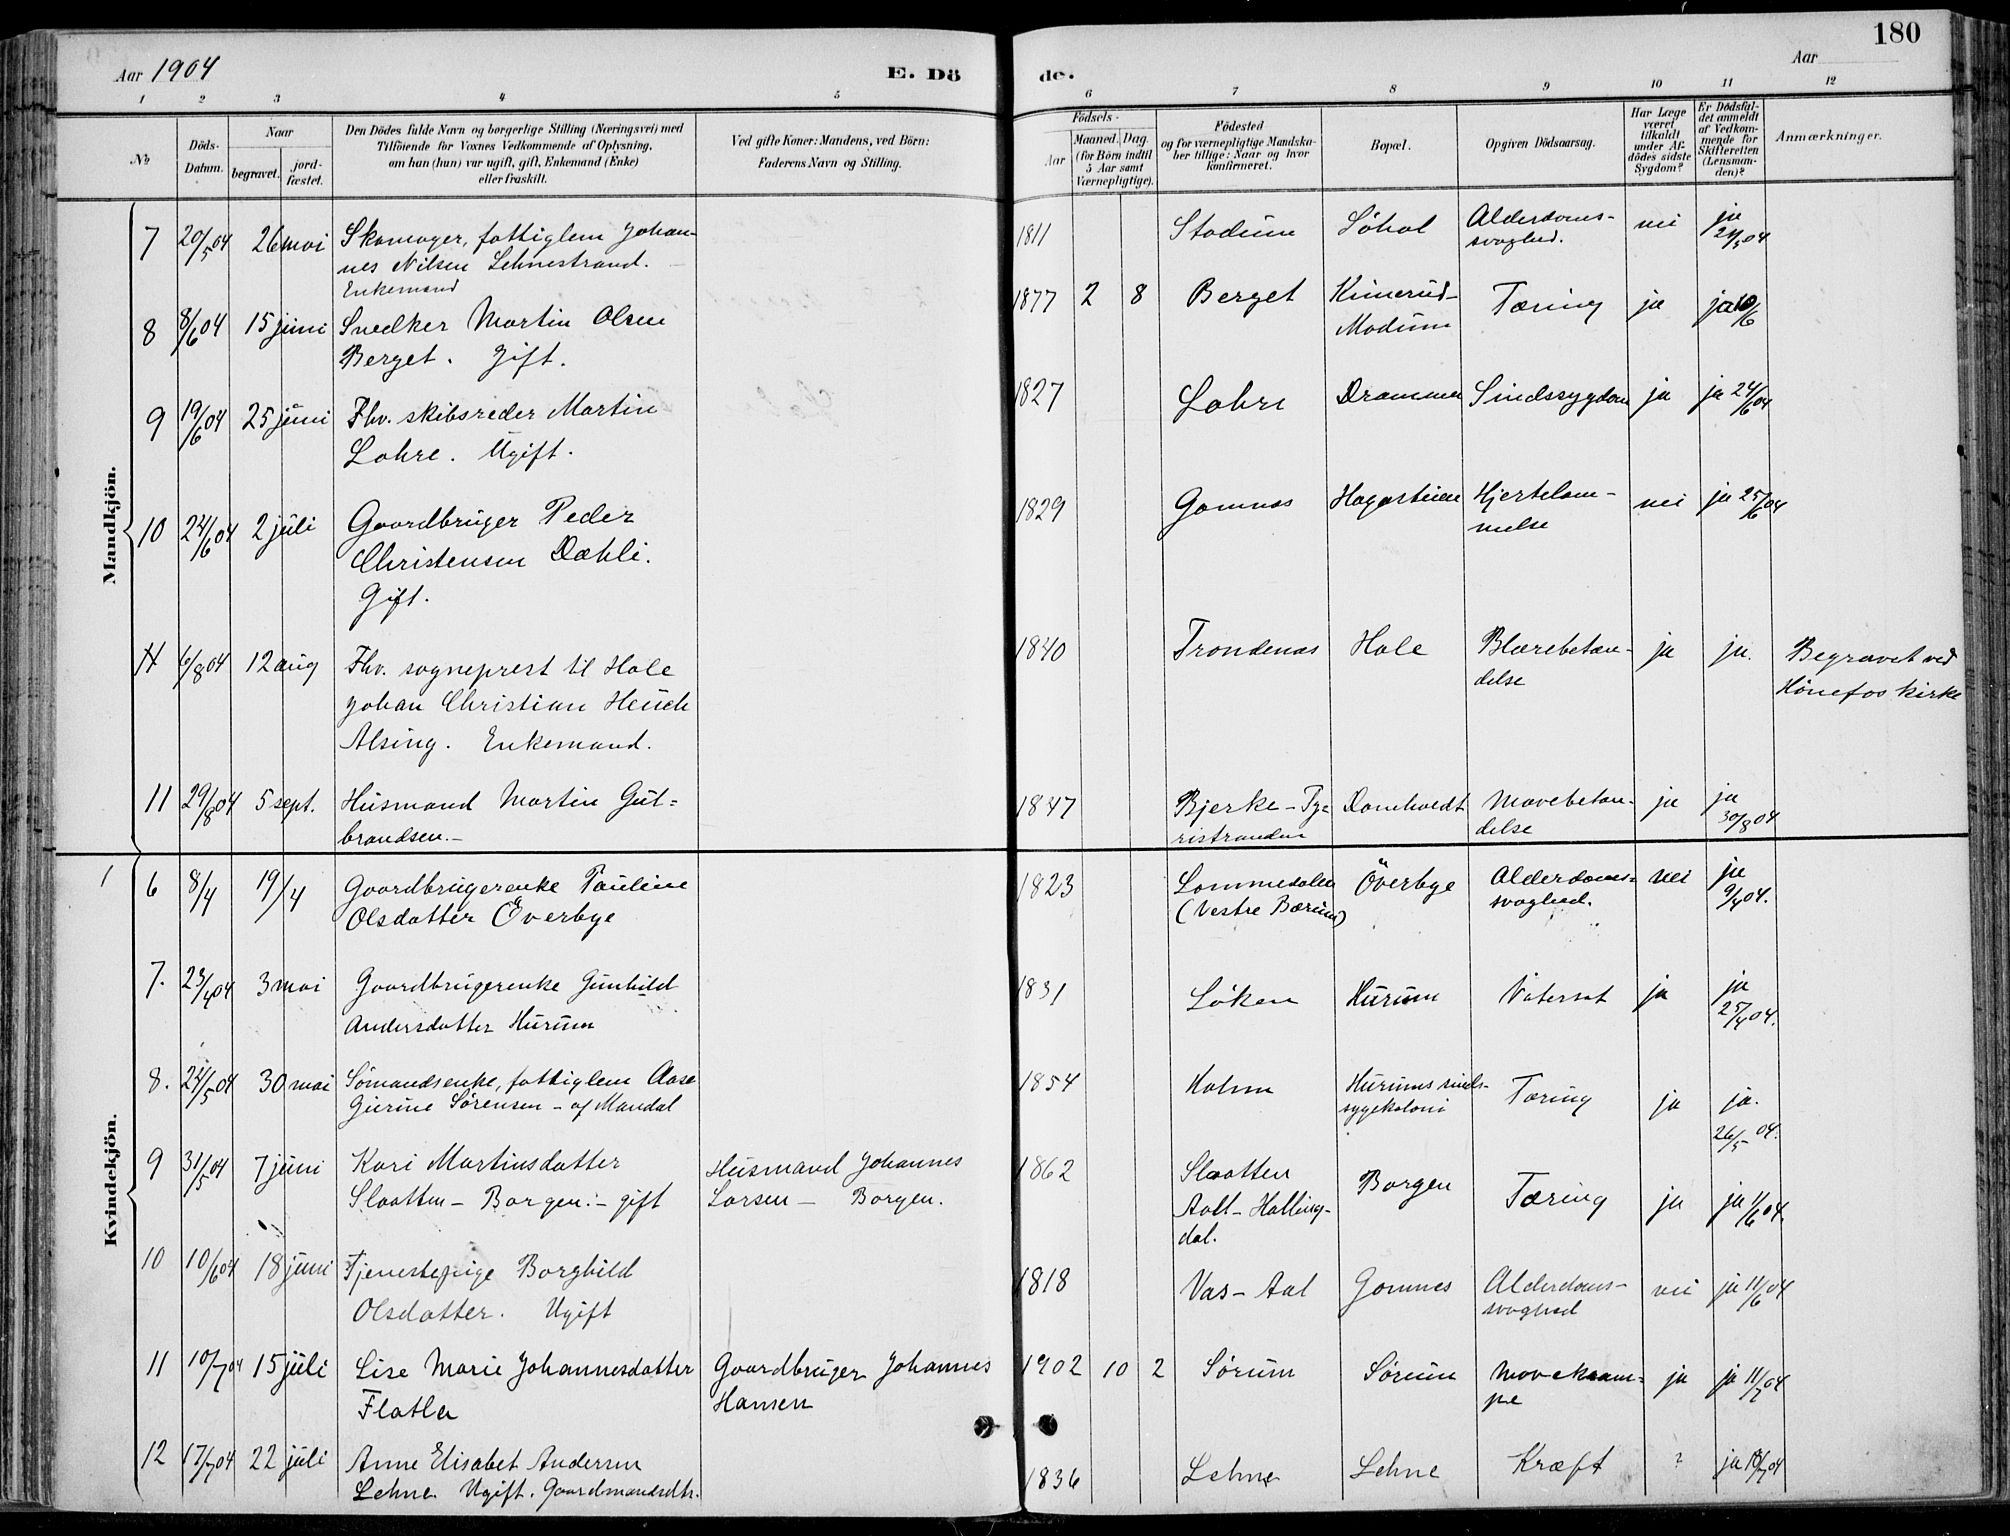 Aar 1904
E. Dö
de.
Aar
180
1 2 3 4 5
6 7 8 9 10 11 12
No
Döds-
Datum.
Naar
begravet.
jord-
fæstet.
Den Dödes fulde Navn og borgerlige Stilling (Næringsvei) med
Tilföiende for Voxnes Vedkommende af Oplysning,
om han (hun) var ugift, gift, Enkemand (Enke)
eller fraskilt.
Ved gifte Koner: Mandens, ved Börn:
Faderens Navn og Stilling.
Födsels-
Aar
Maaned. Dag.
(for Börn indtil
5 Aar samt
Værnepligtige).
Födested
og for værnepligtige Mandska-
ber tillige: Naar og hvor
konfirmeret.
Bopæl.
Opgiven Dödsaarsag.
Har Læge
været
tilkaldt
under Af-
dödes sidste
Sygdom?
Er Dödsfal-
det anmeldt
af Vedkom-
mende for
Skifteretten
(Lensman-
den)?
Anmærkninger.
Mandkjön.
7 20/5 04 26 mai Skomager, fattiglem Johan-
nes Nilsen Lehnestrand.
Enkemand
1811 Stadum Løhol Alderdoms-
svaghed. nei ja
21/5 04
8 8/6 04 15 juni Snedker Martin Olsen
Berget. Gift.
1877 2 8 Berget Kimerud-
Modum Tæring ja ja 10/6
9 19/6 04 25 juni Fhv. skibsreder Martin
Lohre. Ugift.
1827 Lohre Drammen Sindssygdom ja ja 24/6 04
10 24/6 04 2 juli Gaardbruger Peder
Christensen Dæhli.
Gift.
1829 Gomnes Hagasteien Hjertelam-
melse nei ja 25/6 04
6/8 04 12 aug Fhv. sogneprest til Hole
Johan Christian Heuch
Alsing. Enkemand.
1840 Trondenas Hole Blærebetæn-
delse ja ja. Begravet ved
Hönefos kirke
11 29/8 04 5 sept. Husmand Martin Gut=
brandsen.-
1847 Bjerke - Ty=
ristranden Domholdt Mavebetæn-
delse ja ja
30/8 04
Kvindekjön.
6 8/4 19/4 Gaardbrugerenke Pauline
Olsdatter Överbye
1823 Lommedalen
(Vestre Bærum) Överbye Alderdoms-
svaghed. nei ja
9/4 04.
7. 23/4 04 3 mai Gaardbrugerenke Gunhild
Andersdatter Hurum
1831 Löken Hurum Vatersot ja ja
25/4 04.
8. 24/5 04 30 mai Sømandsenke, fattiglem Aase
Gurine Sørensen - af Mandal
1854 Holum Hurums sinds-
sygekoloni Tæring ja ja.
26/5 04.
9 31/5 04 7 juni Kari Martinsdatter
Slaatten - Borgen. - gift
Husmand Johannes
Larsen - Borgen.
1862 Slaatten
Aal - Halling-
dal. Borgen Tæring ja ja 1/6 04.
10 10/6 04 18 juni Tjenestepige Borghild
Olsdatter. Ugift
1818 Vas - Aal Gomnes Alderdoms-
svaghed nei ja 11/6 04
11 10/7 04 15 juli Lise Marie Johannesdatter
Flatla
Gaardbruger Johannes
Hansen
1902 10 2 Sørum Sørum Mavekram-
pe ja ja 11/7 04
12 17/7 04 22 juli Anne Elisabet Andersen
Lehne. Ugift. Gaardmandsdtr.
1836 Lehne Lehne Kræft ? ja 18/7 04